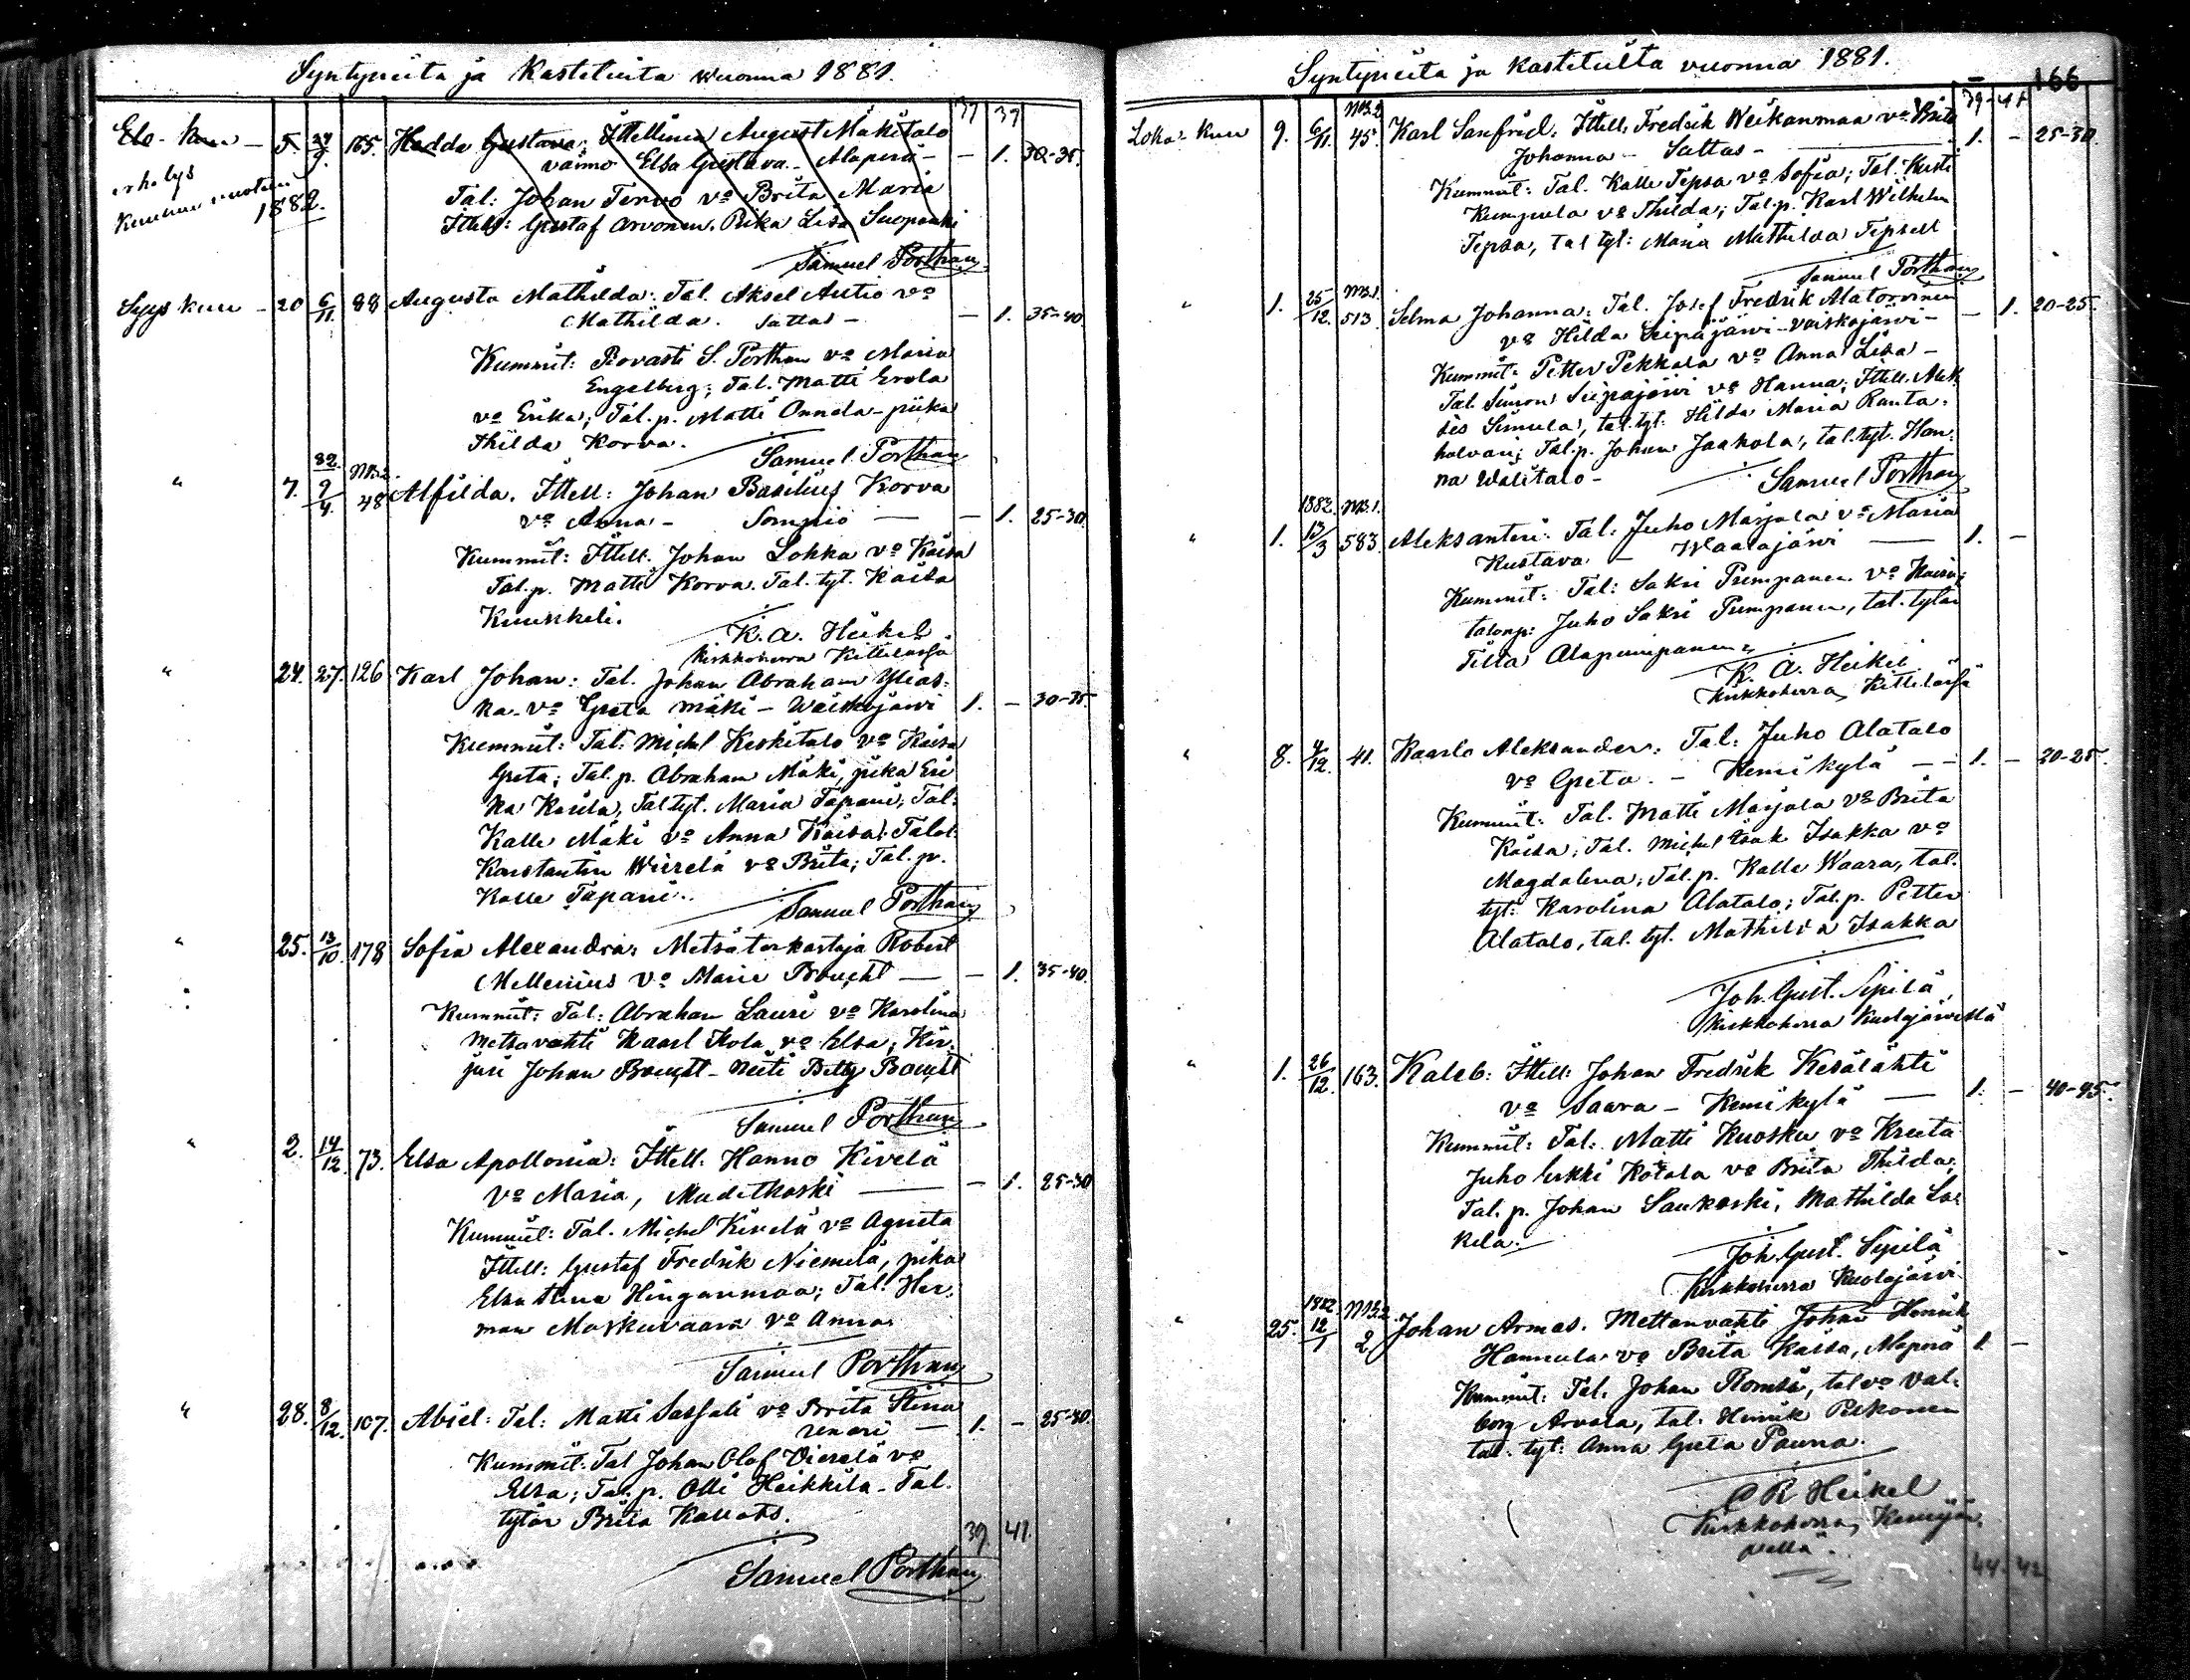 Syntyneitä ja Kastetuita wuonna 1881.
37 39
Elo-kuu - 5. 165. Hedda Gustava: Ittellinen August Mäkitalo
vaimo Elsa Gustava - Alaperä - - 1. 30-35.
erhetys
1882.
Tal: Johan Tervo vo Brita Maria
Ittell: Gustaf Arvonen. Piika Lisa Suopanki
Samuel Porthan
Syys kuu - 20 6/11 88 Augusta Mathilda: Tal. Aksel Autio vo
Mathilda. Sattas - - 1. 35-40
Kummit: Rovasti S. Porthan vo Maria
Engelberg; Tal. Matti Erola
vo Erika; Tal.p. Matti Onnela - piika
Thilda Korva.
Samuel Porthan
82.
" 7. 9/4. 48 Alfilda. Ittell: Johan Basilius Korva
vo Anna - Sompio - - 1. 25-30.
Kummit: Ittell. Johan Lokka vo Kaisa
Tal.p. Matti Korva. Tal. tyt. Kaisa
Kuukkeli.
K. A. Heikel
Kirkkoherra Kittilässä
" 24. 27. 126 Karl Johan: Tal. Johan Abraham
ka - vo Greta Mäki - Waiskojärvi 1. - 30-35
Kummit: Tal: Michel Keskitalo vo Kaisa
Greta; Tal.p. Abraham Mäki, piika Eri
ka Tal tyt. Maria Tapani; Tal:
Kalle Mäki vo Anna Kaisa; Talol.
Konstantin Wierelä vo Brita; Tal. p.
Kalle Tapani.
Samuel Porthan
" 25. 13/10. 178 Sofia Alexandra: Metsätarkastaja Robert
Mellenius vo Maria Boucht - - 1. 35-40.
Kummit: Tal: Abraham Lauri vo Karolina
Metsavahti Kaarl Kola vo Elsa; Kir-
juri Johan Boucht - Neiti Betty Boucht
Samuel Porthan
" 2. 14/12. 73. Elsa Apollonia: Ittell. Hanno Kivelä
vo Maria, Madetkoski - - 1. 25-30
Kummit: Tal. Michel Kivelä vo Agusta
Ittell: Gustaf Fredrik Niemelä, piika
Elsa Stina Hinganmaa; Tal. Her-
man Moskuvaara vo Anna
Samuel Porthan
" 28. 8/12. 107. Abiel: Tal: Matti Sassali vo Brita Stina
1. - 25-30.
Kummit: Tal Johan Olof Vierelä vo
Elsa; Tal.p. Olli Heikkilä - Tal.
tytär Brita
39 41.
Samuel Porthan
Syntyneitä ja kastetuita vuonna 1881.
166
39 - 41
Loka-kuu 9. 6/11. 45. Karl Sanfrid: Ittell. Fredrik Weikanmaa vo Brita
Johanna - Sattas - 1. - 25-30.
Kummit: Tal. Kalle Tepsa vo Sofia; Tal. Kusti
Kumpula vo Thilda; Tal.p. Karl Wilhelm
Tepsa, tal tyt: Maria Mathilda Tepsell
Samuel Porthan
" 1. 25/12. 513. Selma Johanna: Tal. Josef Fredrik Alatorvinen
vo Hilda Seipäjärvi - Vaiskojärvi - - 1. 20-25.
Kummit: Petter Pekkala vo Anna Lisa -
Tal. Simon Seipäjärvi vo Hanna; Ittell. Alek
sis Simula, tal. tyt. Hilda Maria Ranta-
halvari; Tal.p. Johan Jaakola, tal. tyt. Han-
na Wälitalo -
Samuel Porthan
1882. NB.1.
" 1. 13/3 583 Aleksanteri: Tal: Juho Marjala vo Maria
Kustava - Waalajärvi 1. -
Kummit: Tal: Sakri Pumpanen vo Kaisa;
talonp: Juho Sakri Pumpanen, tal. tytär
Tilta Alapumpanen
K. A. Heikel
Kirkkoherra, Kittilässä
" 8. 4/12. 41. Kaarlo Aleksander: Tal. Juho Alatalo
vo Greta. - Kemikylä - - 1. - 20-25.
Kummit: Tal. Matti Marjala vo Brita
Kaisa; Tal. Michel Isak Isakka vo
Magdalena; Tal.p. Kalle Waara, tal.
tyt: Karolina Alatalo; Tal.p. Petter
Alatalo, tal. tyt. Mathilda Isakka
Joh. Gust. Sipilä
Kirkkoherra Kuolajärvellä
" 1. 26/12. 163. Kaleb: Ittell: Johan Fredrik Kesälahti
vo Saara - Kemikylä - 1. - 40-45.
Kummit: Tal: Matti Kuosku vo Kreeta
Juho Erkki Kotala vo Brita Thilda;
Tal. p. Johan Saukoski, Mathilda Lak
kela.
Joh. Gust. Sipilä
Kirkkoherra Kuolajärvi
1882 NB.2.
" 25. 12/1 2. Johan Armas. Mettanvahti Johan Henrik
Hannula vo Brita Kaisa, Alaperä 1. -
Kummit: Tal. Johan tal vo Val-
borg Arvola, tal. Henrik Pekonen
tal. tyt: Anna Greta Pauna.
Heikel
Kirkkoherra, Kemijär-
vellä.
44 42